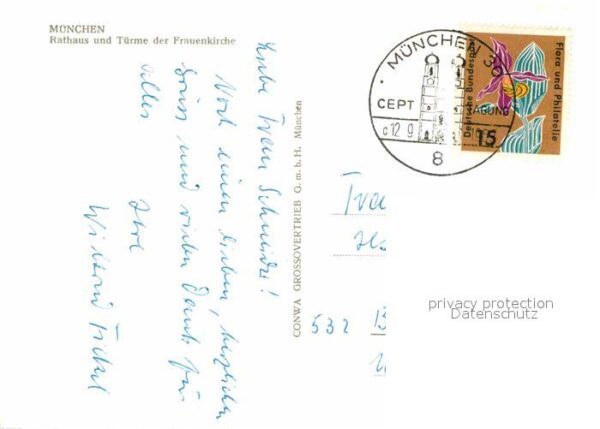 MÜNCHEN
Rathaus und Türme der Frauenkirche
Liebe Frau Schneider!
Noch einen lieben, herzlichen
Gruss und vielen Dank für
alles
Ihre
CONWA GROSSOVERTRIEB G.m.b.H. München
MÜNCHEN
CEPT TAGUNG
8
Deutsche Bundespost
Flora und Philatelie
15
532
privacy protection
Datenschutz